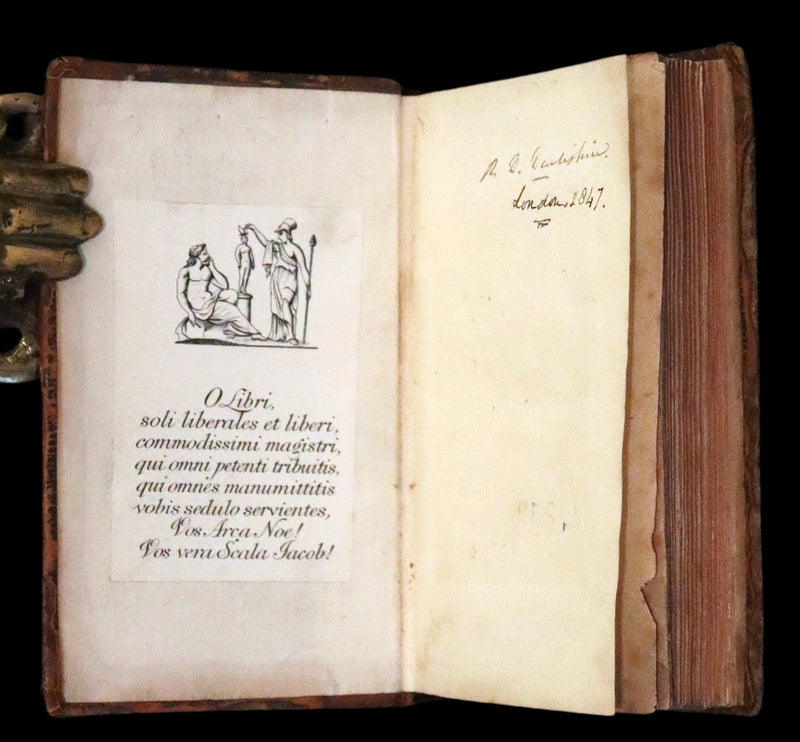 O Libri,
soli liberales et liberi,
commodissimi magistri,
qui omni petenti tribuitis,
qui omnes manumittitis
vobis sedulo servientes,
Vos Arca Noe!
Vos vera Scala Jacob!
R. D.
London. 1847.